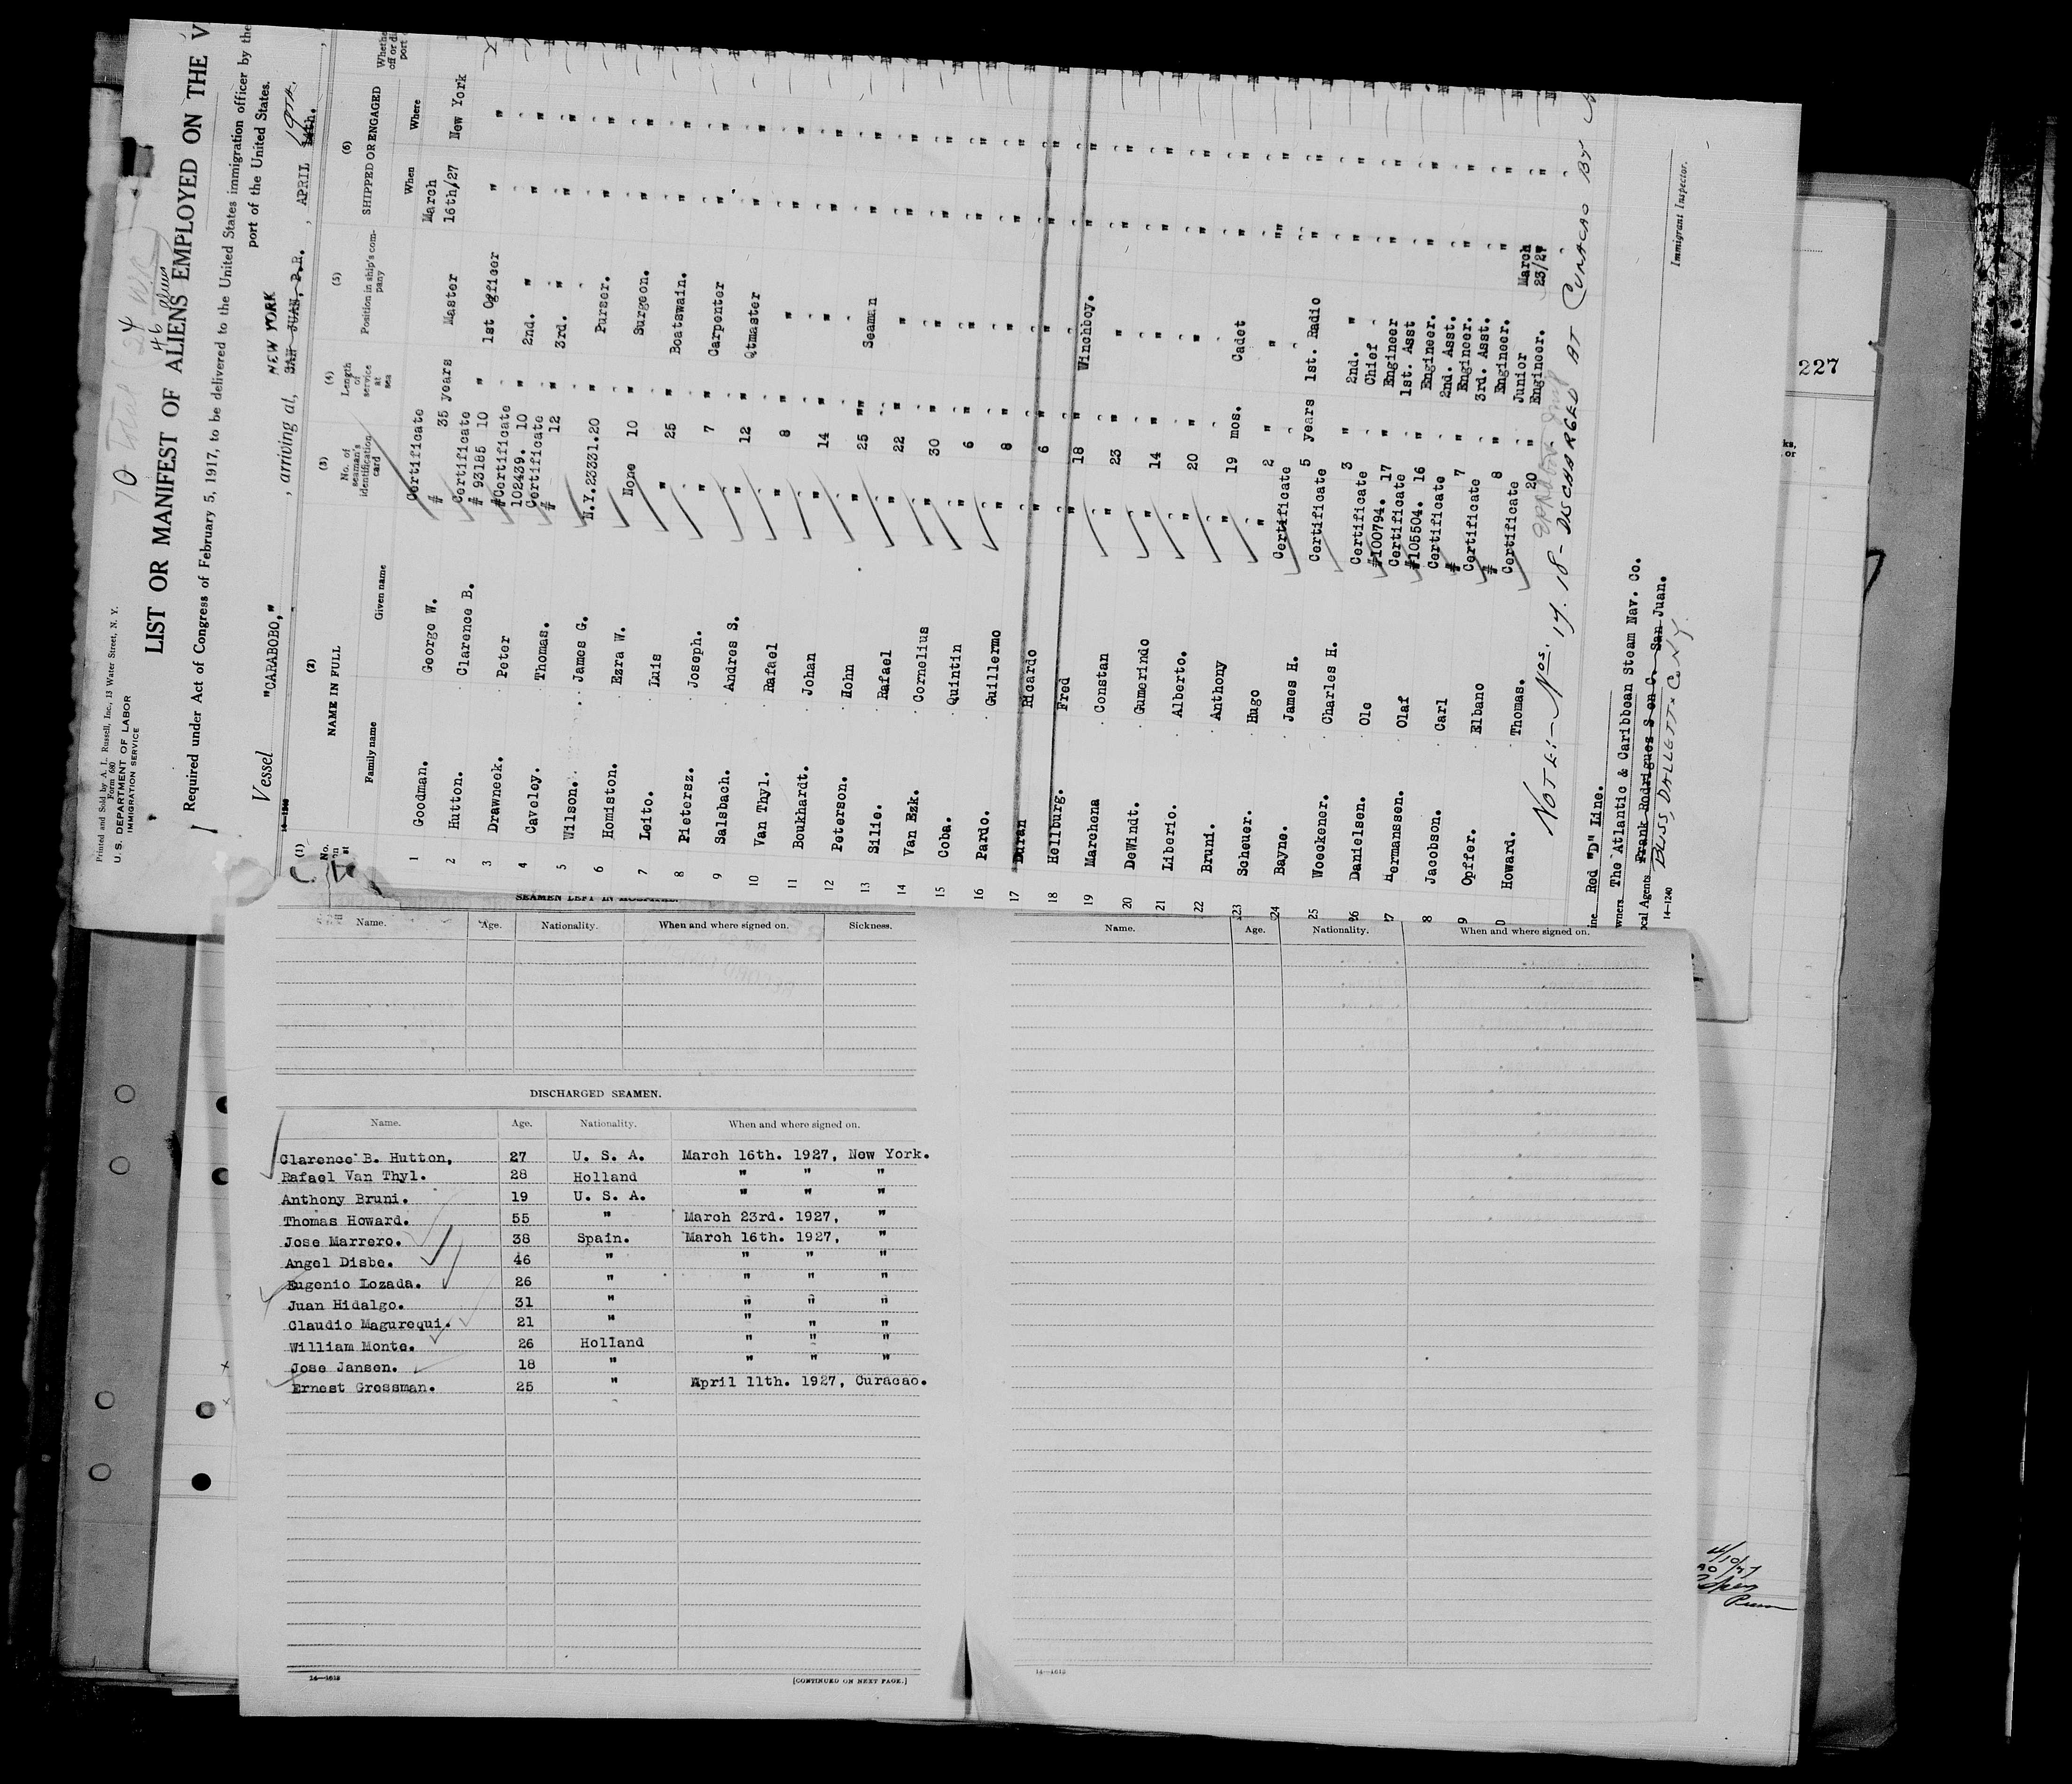 Printed and Sold by A. L. Russell, Inc., 13 Water Street, N. Y.
Form 680
U. S. DEPARTMENT OF LABOR
IMMIGRATION SERVICE
LIST OR MANIFEST OF ALIENS EMPLOYED ON THE V
Required under Act of Congress of February 5, 1917, to be delivered to the United States immigration officer by the
port of the United States.
Vessel "CARABOBO," , arriving at, NEW YORK SAN JUAN, P.R. , APRIL 19TH. 14th.
(1) (2) (3) (4) (5) (6)
NAME IN FULL No. of seaman's identification card Length of service at sea Position in ship's company SHIPPED OR ENGAGED
Family name Given name When Where
1 Goodman. George W. Certificate # 35 years Master March 16th/27 New York
2 Hutton. Clarence B. Certificate # 93185 10 " 1st Officer " "
3 Drawneck. Peter #Certificate 102439. 10 " 2nd. " " "
4 Caveley. Thomas. Certificate # 12 " 3rd. " " "
5 Wilson. James G. N.Y.22331. 20 " Purser. " "
6 Homiston. Ezra W. None 10 " Surgeon. " "
7 Leito. Luis " 25 " Boatswain. " "
8 Pietersz. Joseph. " 7 " Carpenter " "
9 Salsbach. Andres S. " 12 " Qtmaster " "
10 Van Thyl. Rafael " 8 " " " "
11 Boukhardt. Johan " 14 " " " "
12 Peterson. Hohn " 25 " Seaman " "
13 Silie. Rafael " 22 " " " "
14 Van Ezk. Cornelius " 30 " " " "
15 Coba. Quintin " 6 " " " "
16 Pardo. Guillermo " 8 " " " "
17 Duran Ricardo " 6 " " " "
18 Hellburg. Fred " 18 " Winchboy. " "
19 Marchena Constan " 23 " " " "
20 DeWindt. Gumerindo " 14 " " " "
21 Liberio. Alberto. " 20 " " " "
22 Bruni. Anthony " 19 mos. Cadet " "
23 Scheuer. Hugo " 2 " " " "
24 Bayne. James H. Certificate 5 years 1st. Radio " "
25 Woeckener. Charles H. Certificate 3 " 2nd. " " "
26 Danielsen. Ole Certificate #100794. 17 " Chief Engineer " "
7 Hermanssen. Olaf Certificate #105504. 16 " 1st. Asst Engineer. " "
8 Jacobson. Carl Certificate # 7 " 2nd. Asst. Engineer. " "
9 Opffer. Elbano Certificate # 8 " 3rd. Asst. Engineer. " "
0 Howard. Thomas. Certificate 20 " Junior Engineer. March 23/27 "
NOTE:- Nos. 17. 18 - DISCHARGED AT CURACAO BY
Red "D" Line.
wners The Atlantic & Caribbean Steam Nav. Co.
ocal Agents Frank Rodriguez S en C. San Juan.
BLISS, DALLETT & Co N.Y.
14-1240
Immigrant Inspector.
227
SEAMEN LEFT IN HOSPITAL.
Name. Age. Nationality. When and where signed on. Sickness.
DISCHARGED SEAMEN.
Name. Age. Nationality. When and where signed on.
Clarence B. Hutton, 27 U. S. A. March 16th. 1927, New York.
Rafael Van Thyl. 28 Holland " " "
Anthony Bruni. 19 U. S. A. " " "
Thomas Howard. 55 " March 23rd. 1927, "
Jose Marrero. 38 Spain. March 16th. 1927, "
Angel Disbe. 46 " " " "
Eugenio Lozada. 26 " " " "
Juan Hidalgo. 31 " " " "
Claudio Magurequi. 21 " " " "
William Monte. 26 Holland " " "
Jose Jansen. 18 " " " "
Ernest Grossman. 25 " April 11th. 1927, Curacao.
14-1612
[CONTINUED ON NEXT PAGE.]
Name. Age. Nationality. When and where signed on.
14-1612
4/10/27